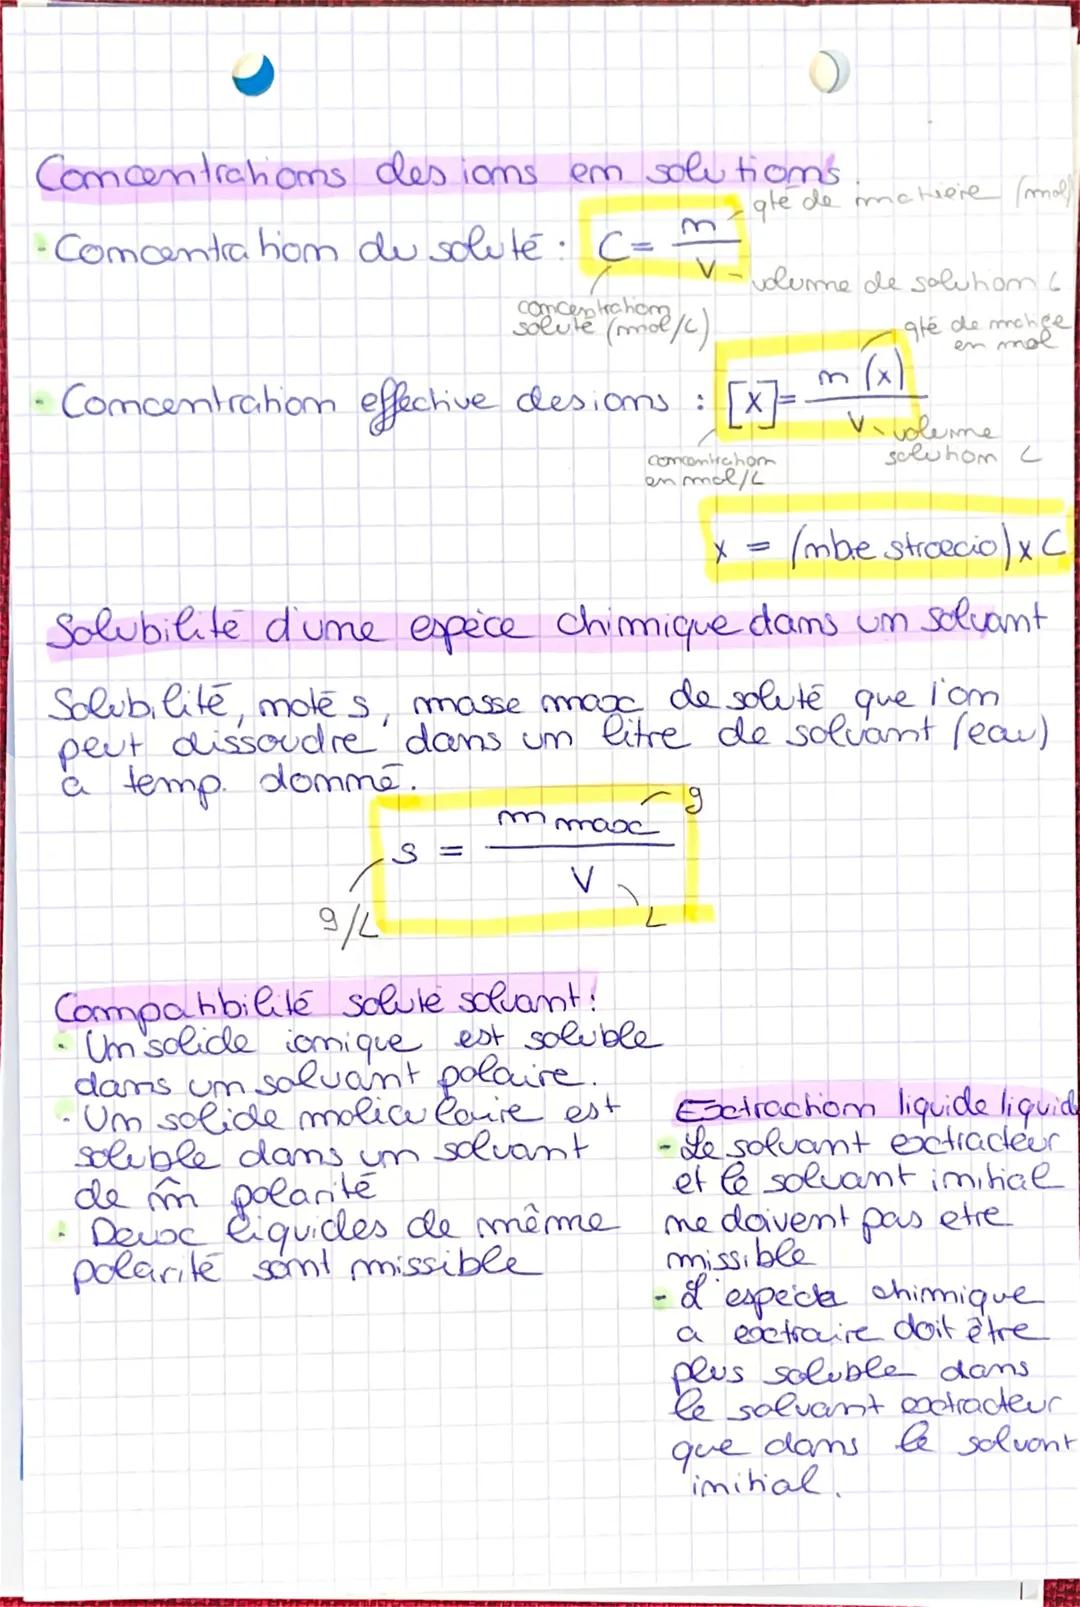 Concentrations des ions en solutions
- Concentration du soluté : C = n / V
qté de matière (mol)
volume de solution L
concentration
soluté (mol/L)
- Concentration effective des ions : [X] = n (x) / V
qté de matière
en mol
volume
solution L
concentration
en mol/L
x = (nbre stroecio) x C
Solubilité d'une espèce chimique dans un solvant
Solubilité, noté s, masse max de soluté que l'on
peut dissoudre dans un litre de solvant (eau)
a temp. donné.
s = m max / V
g
g/L
L
Compatibilité soluté solvant :
- Un solide ionique est soluble
dans un solvant polaire.
- Un solide moliculaire est
soluble dans un solvant
de m̂ polarité
- Deux liquides de même
polarité sont missible
Extraction liquide liquide
- Le solvant extracteur
et le solvant initial
ne doivent pas etre
missible
- L'espèce chimique
a extraire doit être
plus soluble dans
le solvant extracteur
que dans le solvant
initial.